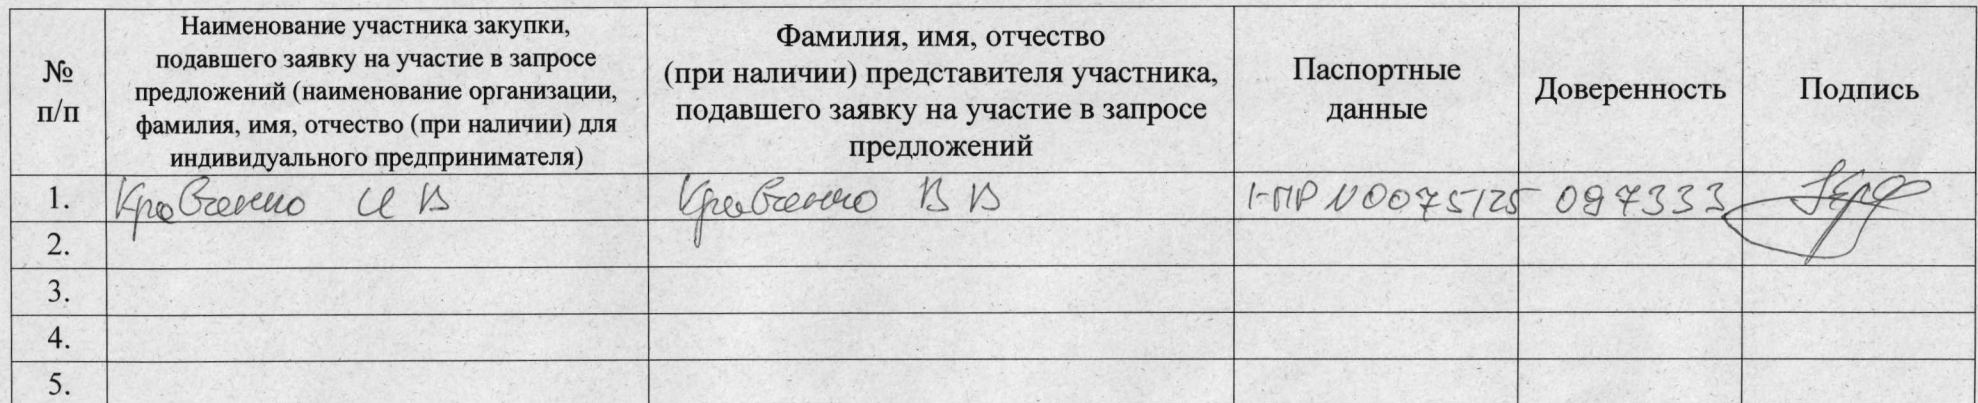 №
п/п
Наименование участника закупки,
подавшего заявку на участие в запросе
предложений (наименование организации,
фамилия, имя, отчество (при наличии) для
индивидуального предпринимателя)
Фамилия, имя, отчество
(при наличии) представителя участника,
подавшего заявку на участие в запросе
предложений
Паспортные
данные
Доверенность
Подпись
1.
Кравченко И В
Кравченко В В
I-ПР N0075125
097333
2.
3.
4.
5.